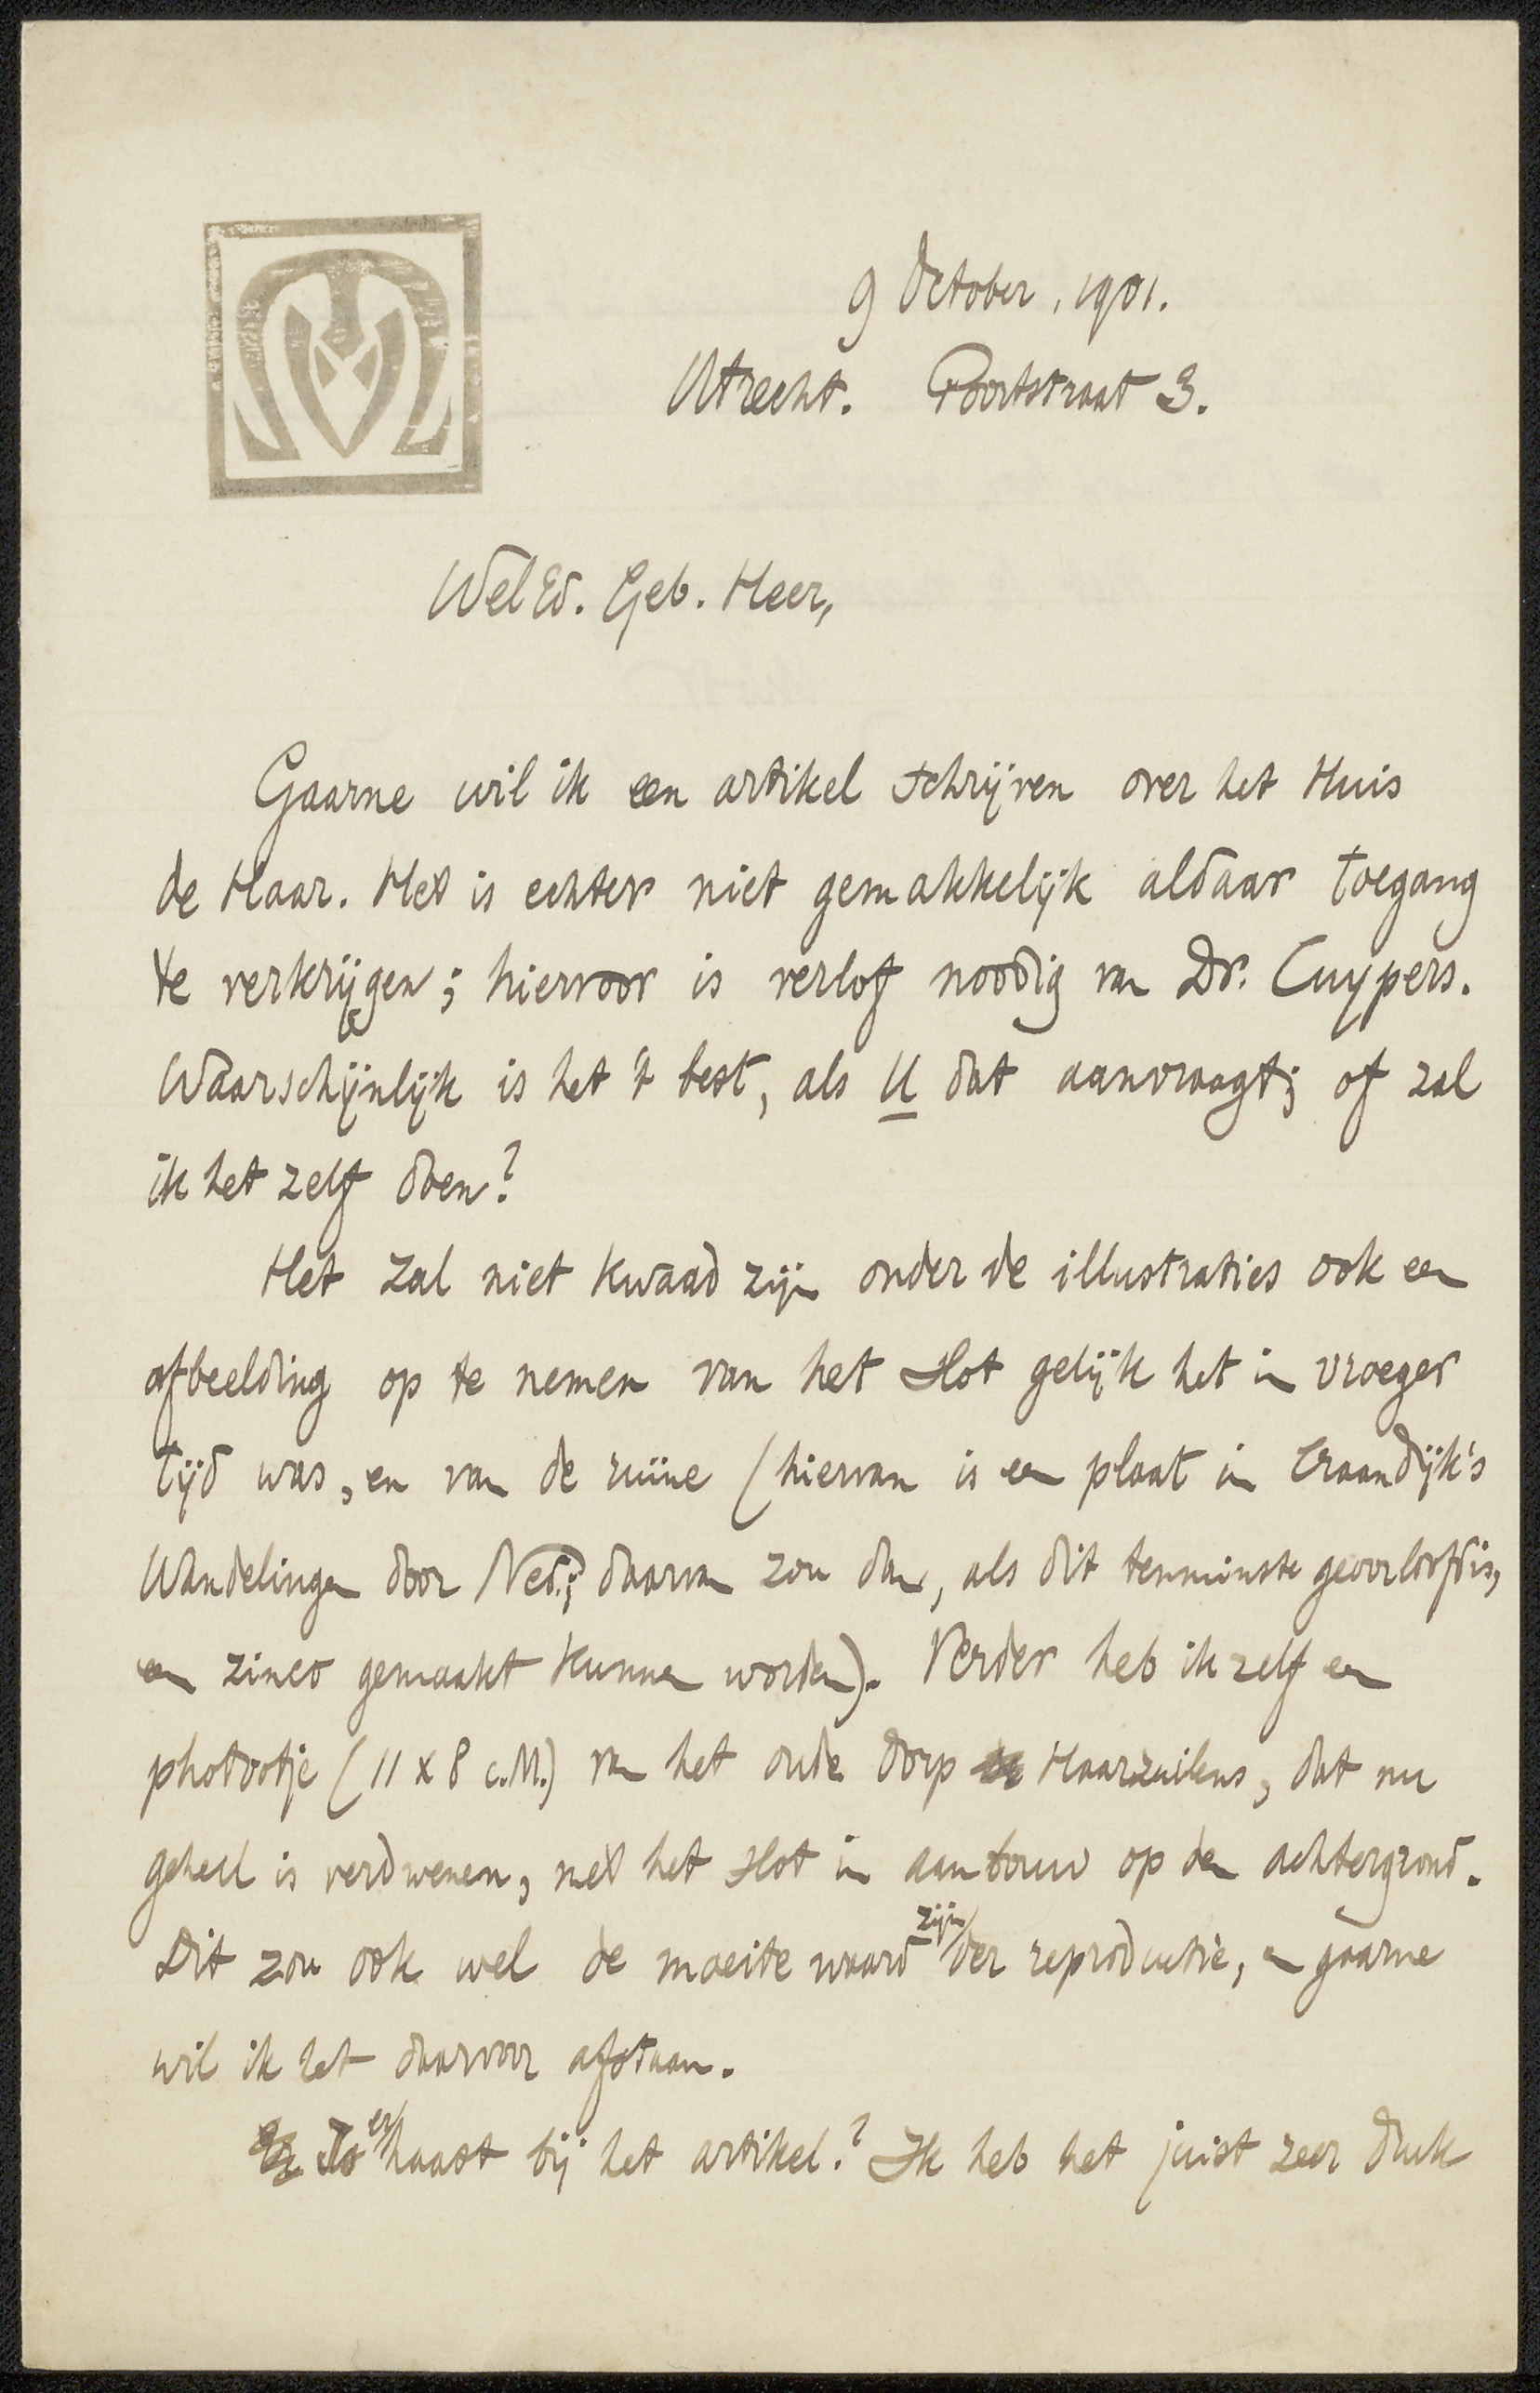 9 October, 1901.
Utrecht. Poortstraat 3.
WelEd. Geb. Heer,
Gaarne wil ik een artikel schrijven over het Huis
de Haar. Het is echter niet gemakkelijk aldaar toegang
te verkrijgen; hiervoor is verlof noodig van Dr. Cuypers.
Waarschijnlijk is het 't best, als U dat aanvraagt; of zal
ik het zelf doen?
Het zal niet kwaad zijn onder de illustraties ook een
afbeelding op te nemen van het Slot gelijk het in vroeger
tijd was, en van de ruïne (hiervan is een plaat in Craandijk's
Wandelingen door Ned.; daarvan zou dan, als dit tenminste geoorloofd is,
een zinco gemaakt kunnen worden). Verder heb ik zelf een
photootje (11 x 8 c.M.) van het oude dorp Haarzuilens, dat nu
geheel is verdwenen, met het Slot in aanbouw op den achtergrond.
Dit zou ook wel de moeite waard zijn der reproductie, en gaarne
wil ik het daarvoor afstaan.
Is er haast bij het artikel? Ik heb het juist zeer druk